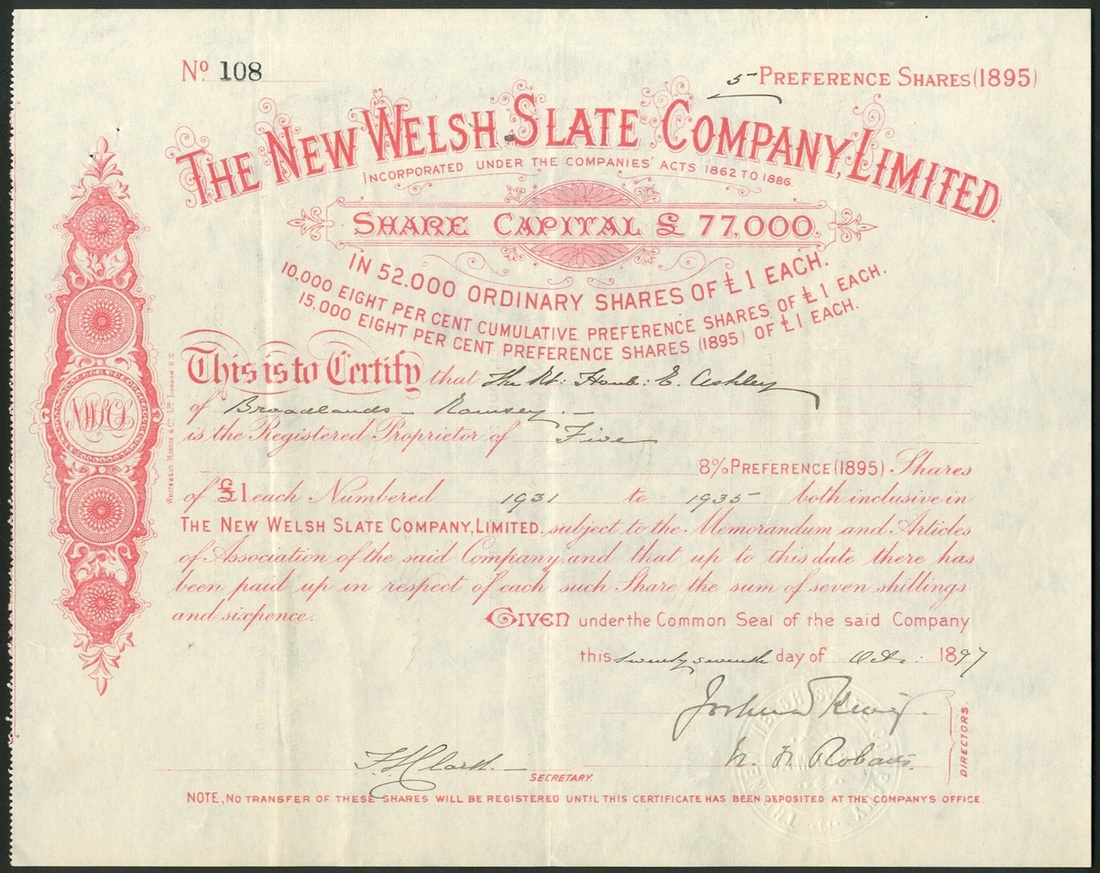 No 108
5 PREFERENCE SHARES (1895)
THE NEW WELSH SLATE COMPANY, LIMITED.
INCORPORATED UNDER THE COMPANIES' ACTS 1862 TO 1886.
SHARE CAPITAL £ 77,000.
IN 52.000 ORDINARY SHARES OF £1 EACH.
10.000 EIGHT PER CENT CUMULATIVE PREFERENCE SHARES OF £1 EACH.
15,000 EIGHT PER CENT PREFERENCE SHARES (1895) OF £1 EACH.
This is to Certify that The Rt: Honb: E. Ashley
of Broadlands - Romsey. -
is the Registered Proprietor of Five
8% PREFERENCE (1895) Shares
of £1 each Numbered 1931 to 1935 both inclusive in
THE NEW WELSH SLATE COMPANY, LIMITED. subject to the Memorandum and Articles
of Association of the said Company and that up to this date there has
been paid up in respect of each such Share the sum of seven shillings
and sixpence. GIVEN under the Common Seal of the said Company
this twenty seventh day of Oct: 1897
DIRECTORS.
SECRETARY.
NOTE, NO TRANSFER OF THESE SHARES WILL BE REGISTERED UNTIL THIS CERTIFICATE HAS BEEN DEPOSITED AT THE COMPANY'S OFFICE.